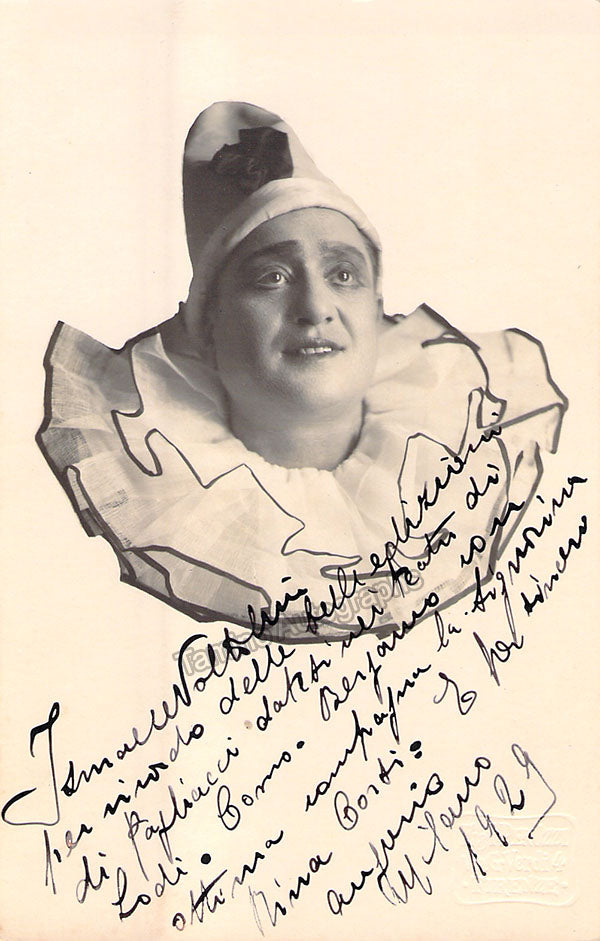 Ismaele Voltolini
per ricordo delle belle edizioni
di Pagliacci datesi nei teatri di
Lodi. Como. Bergamo con
ottima compagna la Signorina
Rina Corti. E per sincero
augurio
Milano
1929
Tamino Autographs